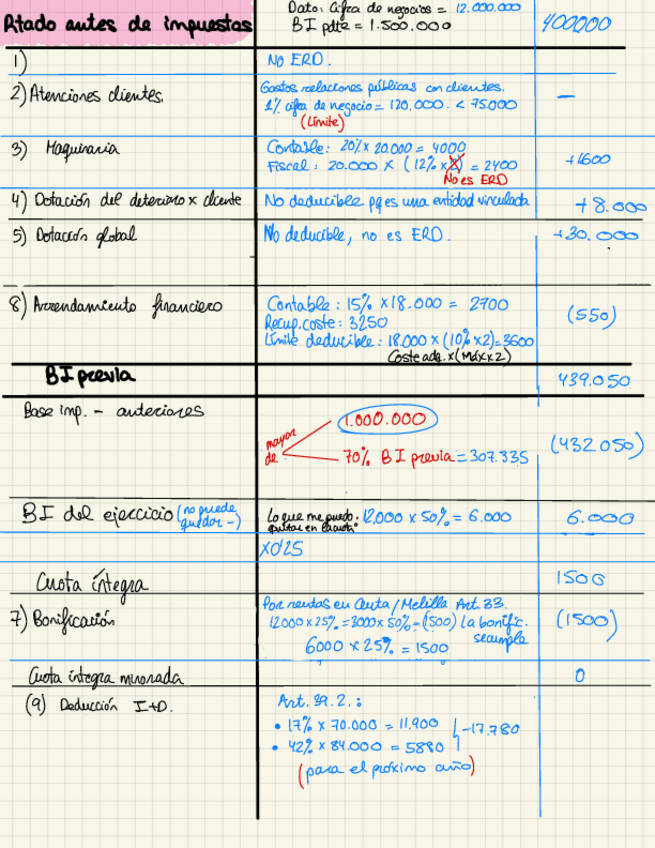 Rtado antes de impuestos
Dato: Cifra de negocios = 12.000.000
BI pdte = 1.500.000
400000
1)
No ERD.
2) Atenciones clientes.
Gastos relaciones públicas con clientes.
1% cifra de negocio = 120.000. < 75000
(Límite)
—
3) Maquinaria
Contable: 20% x 20.000 = 4000
Fiscal: 20.000 x (12% x 2) = 2400
No es ERD
+1600
4) Dotación del deterioro x cliente
No deducible pq es una entidad vinculada
+8.000
5) Dotación global
No deducible, no es ERD.
+30.000
8) Arrendamiento financiero
Contable: 15% x 18.000 = 2700
Recup. coste: 3250
Límite deducible: 18.000 x (10% x 2) = 3600
Coste adq. x (Máx x 2)
(550)
BI previa
439.050
Base imp. - anteriores
mayor de
1.000.000
70% BI previa = 307.335
(432050)
BI del ejercicio (no puede quedar -)
Lo que me puedo quitar en la cuota: 12.000 x 50% = 6.000
6.000
x0'25
Cuota íntegra
1500
7) Bonificación
Por rentas en Ceuta/Melilla Art. 33.
12000 x 25% = 3000 x 50% = (500) La bonific. se cumple
6000 x 25% = 1500
(1500)
Cuota íntegra minorada
0
(9) Deducción I+D.
Art. 39.2.:
• 17% x 70.000 = 11.900
• 42% x 84.000 = 5880
-17.780
(para el próximo año)